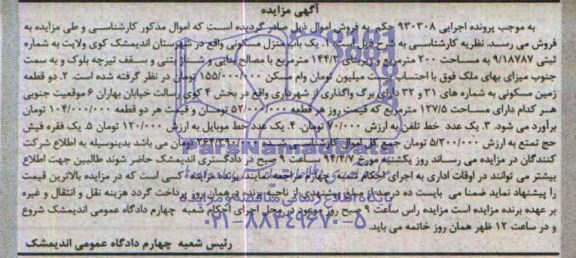 آگهی مزایده
به موجب پرونده اجرایی ۹۳۰۳۰۸ حکم به فروش اموال ذیل صادر گردیده است که اموال مذکور کارشناسی و طی مزایده به
فروش می رسد. نظریه کارشناسی به شرح ذیل است ۱. یک باب منزل مسکونی واقع در شهرستان اندیمشک کوی ولایت به شماره
ثبتی ۹/۱۸۷۸۷ به مساحت ۲۰۰ مترمربع و زیربنای ۱۴۴/۲ مترمربع با مصالح بنایی و شناژ بتنی و سقف تیرچه بلوک و به سمت
جنوب میزای بهای ملک فوق با احتساب بیست میلیون تومان وام مسکن ۱۵۵/۰۰۰/۰۰۰ تومان در نظر گرفته شده است. ۲. دو قطعه
زمین مسکونی به شماره های ۳۱ و ۳۲ دارای برگ واگذاری از شهرداری واقع در بخش ۴ کوی رسالت خیابان بهاران ۶ موقعیت جنوبی
هر کدام دارای مساحت ۱۲۷/۵ مترمربع که قیمت روز هر قطعه ۵۲/۰۰۰/۰۰۰ تومان و قیمت هر دو قطعه ۱۰۴/۰۰۰/۰۰۰ تومان
برآورد می شود. ۳. یک عدد خط تلفن به ارزش ۷۰/۰۰۰ تومان. ۴. یک عدد خط موبایل به ارزش ۱۲۰/۰۰۰ تومان ۵. یک فقره فیش
حج تمتع به ارزش ۵/۲۰۰/۰۰۰ تومان جمع کل اموال کارشناسی تومان می باشد بدینوسیله به اطلاع شرکت
کنندگان در مزایده می رساند روز یکشنبه مورخ ۹۴/۴/۷ ساعت ۹ صبح در دادگستری اندیمشک حاضر شوند طالبین جهت اطلاع
بیشتر می توانند در اوقات اداری به اجرای احکام شعبه چهارم مراجعه نمایند. برنده مزایده کسی است که در مزایده بالاترین قیمت
را پیشنهاد نماید ضمنا می بایست ده درصد از مبلغ پیشنهادی از ناحیه برنده در همان روز پرداخت گردد هزینه نقل و انتقال و غیره
بر عهده برنده مزایده است مزایده راس ساعت ۹ صبح روز موعود در محل اجرای احکام شعبه چهارم دادگاه عمومی اندیمشک شروع
و در ساعت ۱۲ ظهر همان روز خاتمه می یابد.
رئیس شعبه چهارم دادگاه عمومی اندیمشک
ParsNamadData
پایگاه اطلاع رسانی مناقصه و مزایده
۰۲۱-۸۸۳۴۹۶۷۰-۵